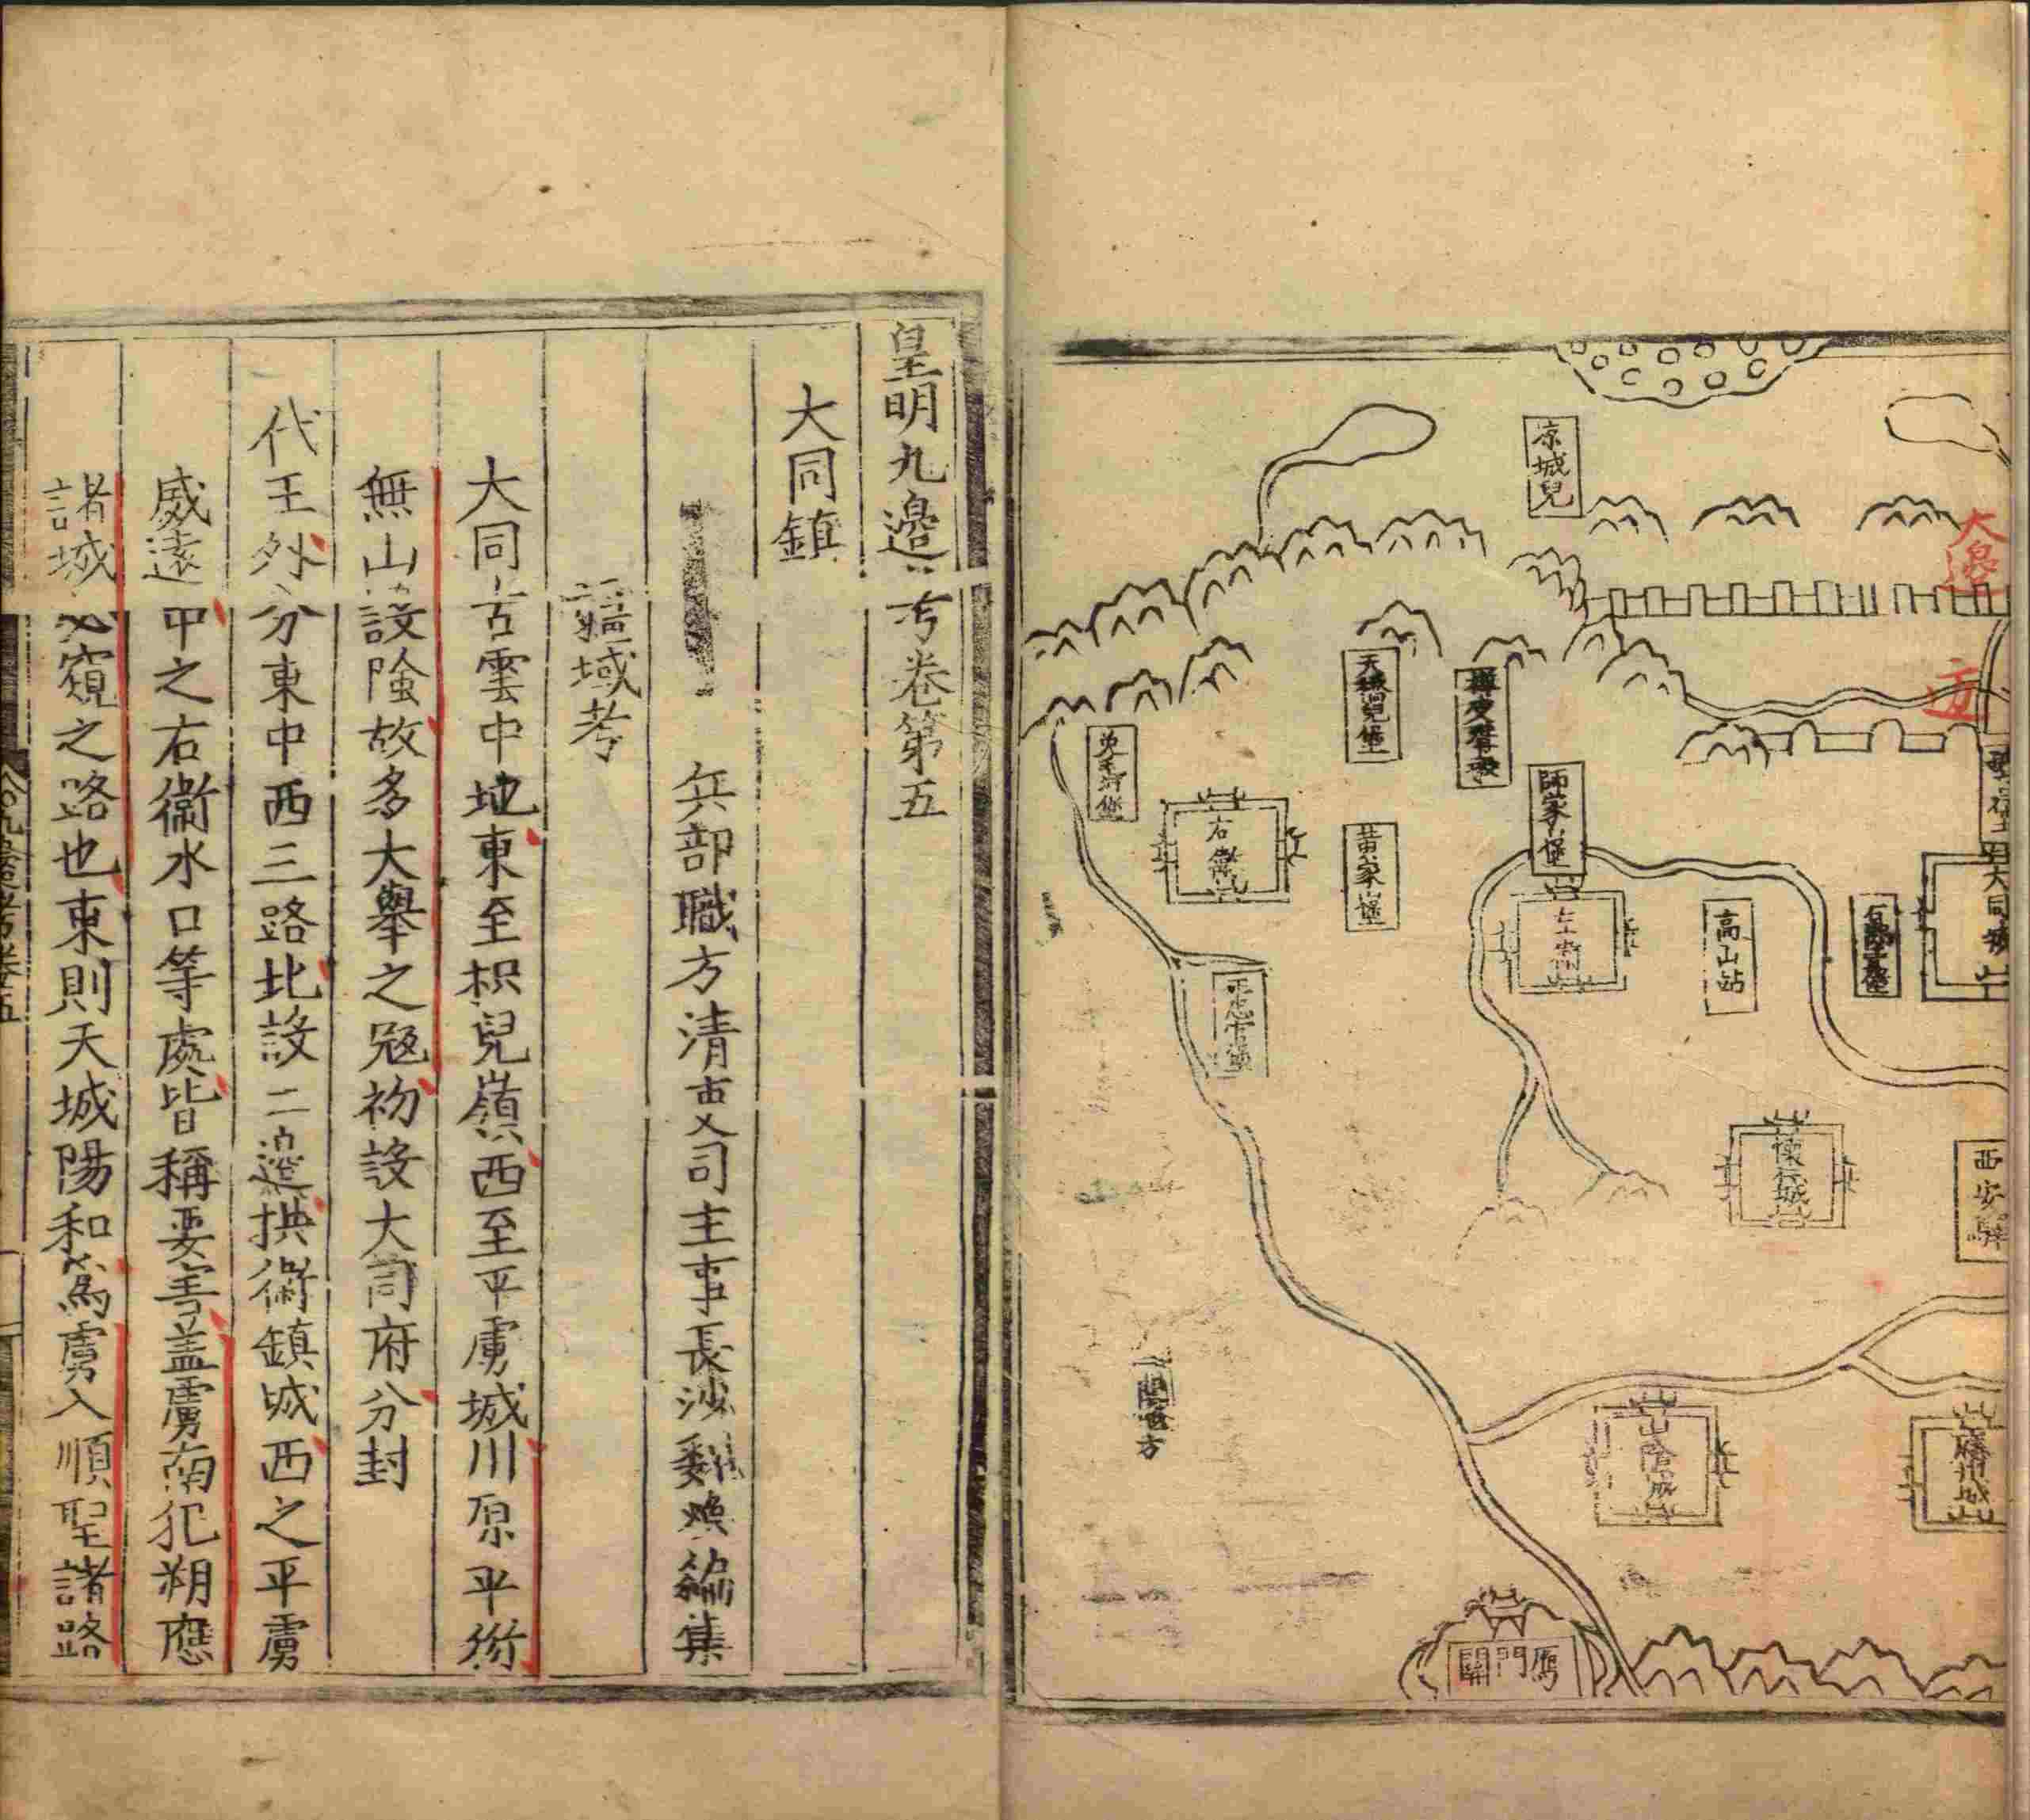 凉城兒
大邊
大同城
有
高山站
師家堡
左衛
黃家堡
右衛
兔毛河堡
懷仁城
西安驛
山陰城
應州城
鴈門關
皇明九邊考卷第五
大同鎮
兵部職方清吏司主事長沙魏煥編集
疆域考
大同古雲中地東至枳兒嶺西至平虜城川原平衍
無山設險故多大舉之寇初設大同府分封
代王外分東中西三路北設二邊拱衛鎮城西之平虜
威遠中之右衛水口等處皆稱要害盖虜南犯朔應
諸城必窺之路也東則天城陽和為虜入順聖諸路